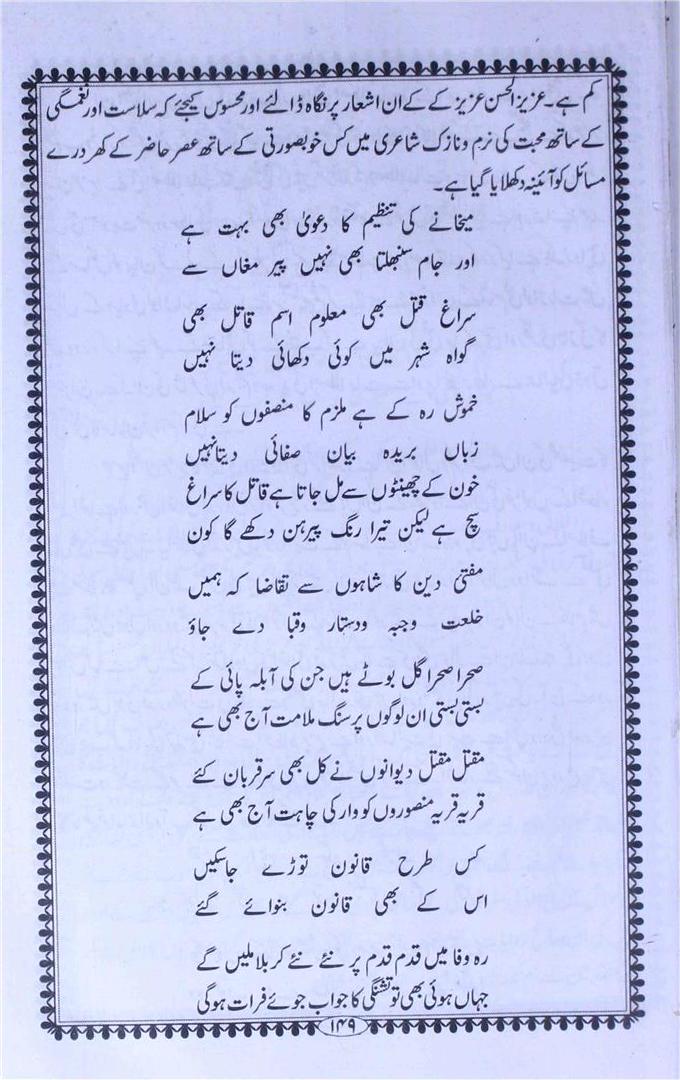 کم ہے۔ عزیز الحسن عزیز کے کے ان اشعار پر نگاہ ڈالئے اور محسوس کیجئے کہ سلاست اور نغمگی
کے ساتھ محبت کی نرم و نازک شاعری میں کس خوبصورتی کے ساتھ عصر حاضر کے کھردرے
مسائل کو آئینہ دکھلایا گیا ہے۔
میخانے کی تنظیم کا دعویٰ بھی بہت ہے
اور جام سنبھلتا بھی نہیں پیر مغاں سے
سراغ قتل بھی معلوم اسم قاتل بھی
گواہ شہر میں کوئی دکھائی دیتا نہیں
خموش رہ کے ہے ملزم کا منصفوں کو سلام
زباں بریدہ بیان صفائی دیتانہیں
خون کے چھینٹوں سے مل جاتا ہے قاتل کا سراغ
سچ ہے لیکن تیرا رنگ پیرہن دکھے گا کون
مفتئ دین کا شاہوں سے تقاضا کہ ہمیں
خلعت وجبہ ودستار وقبا دے جاؤ
صحرا صحرا گل بوٹے ہیں جن کی آبلہ پائی کے
بستی بستی ان لوگوں پر سنگ ملامت آج بھی ہے
مقتل مقتل دیوانوں نے کل بھی سر قربان کئے
قریہ قریہ منصوروں کو دار کی چاہت آج بھی ہے
کس طرح قانون توڑے جاسکیں
اس کے بھی قانون بنوائے گئے
رہ وفا میں قدم قدم پر نئے نئے کربلا ملیں گے
جہاں ہوئی بھی تو تشنگی کا جواب جوئے فرات ہوگی
۱۴۹